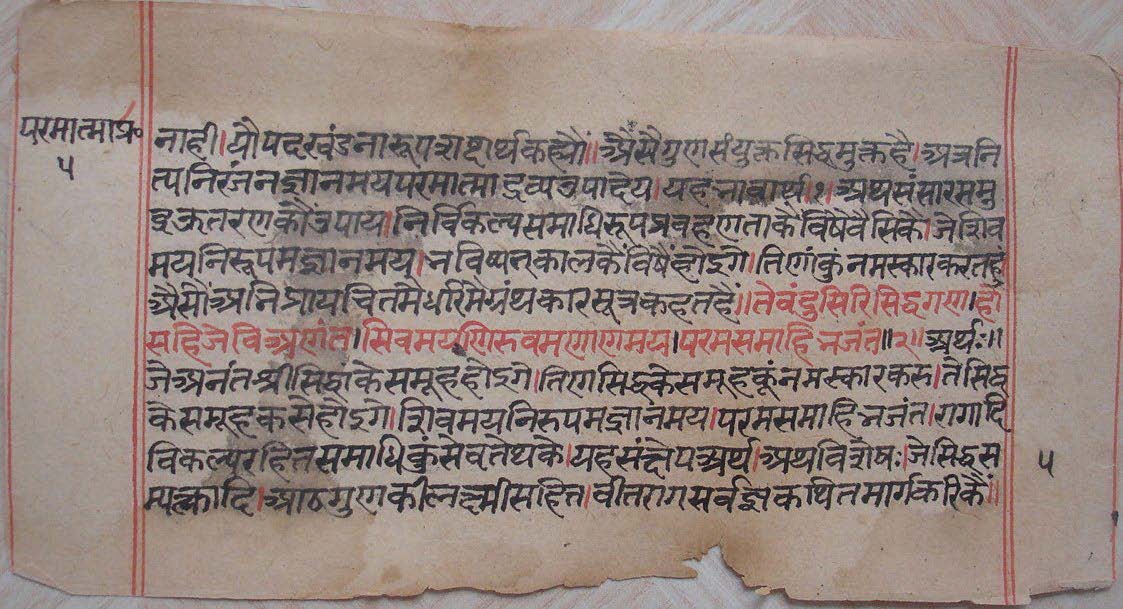 परमात्माप्र०
५
नाही। यौ पद खंडनारूप शब्दार्थ कह्यौ॥ अैसै गुण संयुक्त सिद्ध मुक्त है। अत्र नि
त्य निरंजन ज्ञानमय परमात्मा द्रव्य उपादेय। यह भावार्थ।१। अथ संसार समु
द्र के तरण कौ उपाय। निर्विकल्प समाधिरूप प्रवहण ता कै विषै वैसि कै। जे शिव
मय निरूपम ज्ञानमय। भविष्यत काल कै विषै होइगे। तिणां कुं नमस्कार करत हुं
अैसौ अभिप्राय चित मै धरि मै ग्रंथकार सूत्र कहत है॥ ते वंदु सिरि सिद्धगण। हो
सहि जे वि अणंत। सिवमय णिरुवम णाणमय। परमसमाहि भजंत॥२॥ अर्थः॥
जे अनंत श्री सिद्धां के समूह होइगे। तिण सिद्ध के समूह कूं नमस्कार करु। ते सिद्ध
के समूह कसे होइगे। शिवमय निरुपम ज्ञानमय। परमसमाहि भजंत। रागादि
विकल्प रहित समाधि कुं सेवते थके। यह संक्षेप अर्थ। अथ विशेषः। जे सिद्ध स
म्यक्त्वादि। आठ गुण की लक्ष्मी सहित। वीतराग सर्वज्ञ कथित मार्ग करि कै॥
५